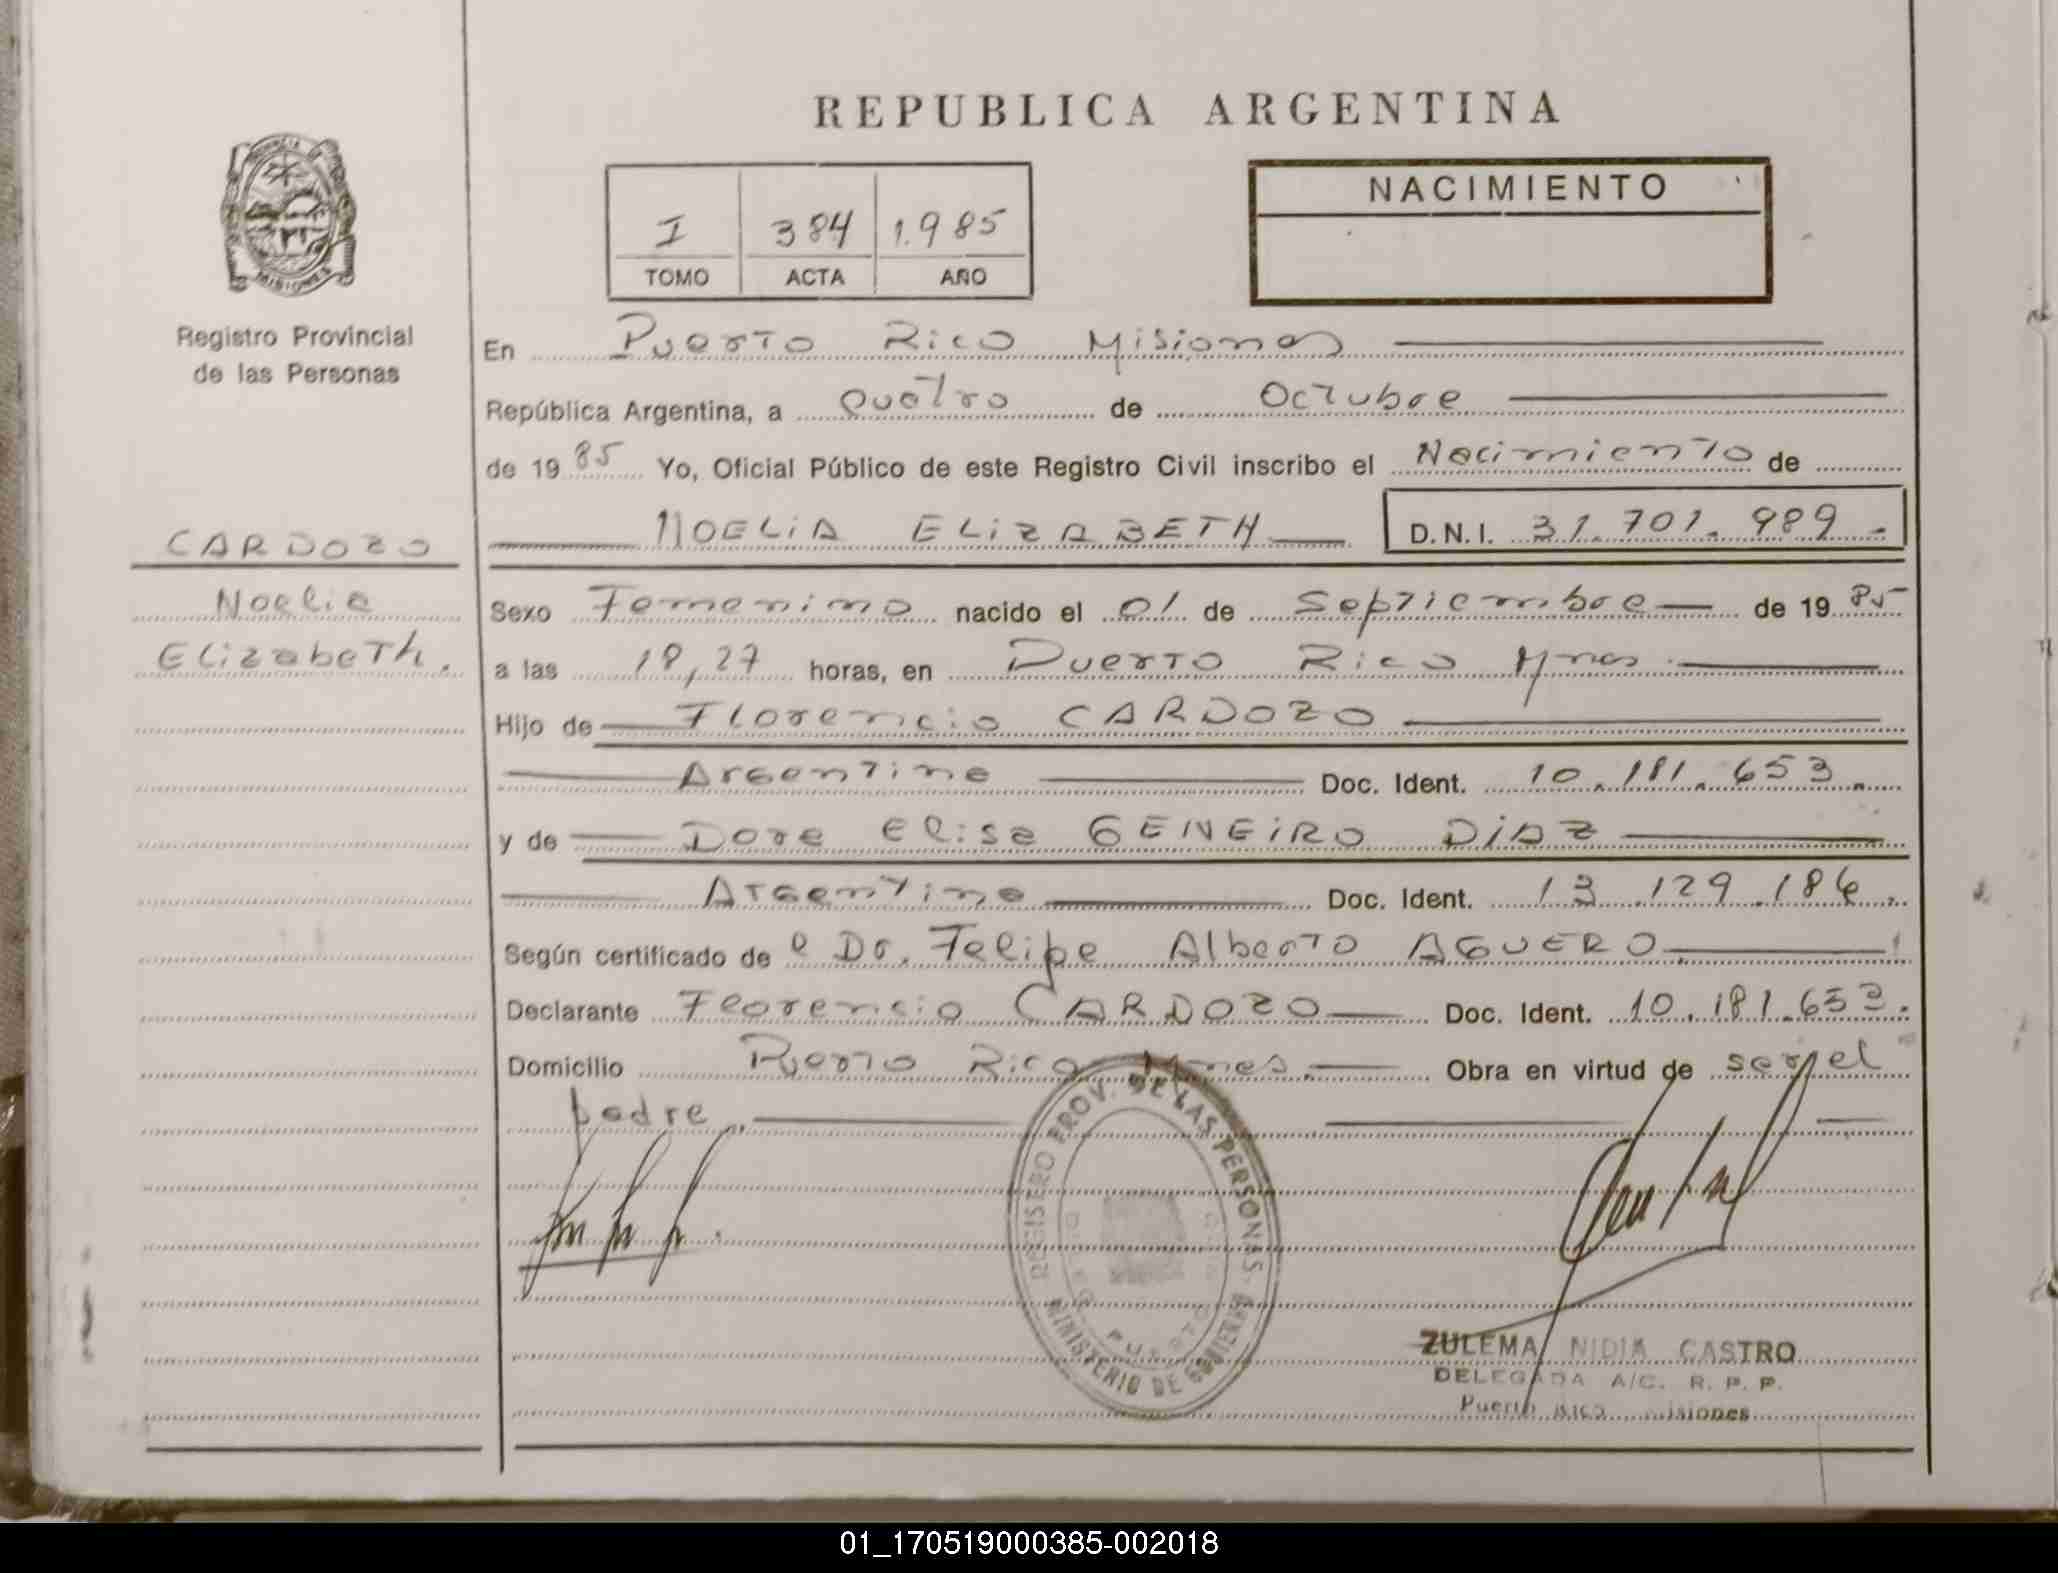 REPUBLICA ARGENTINA
PROVINCIA DE
MISIONES
Registro Provincial
de las Personas
I 384 1.985
TOMO ACTA AÑO
NACIMIENTO
En Puerto Rico Misiones
República Argentina, a Cuatro de Octubre
de 19 85 Yo, Oficial Público de este Registro Civil inscribo el Nacimiento de
NOELIA ELIZABETH D.N.I. 31.701.989.
CARDOZO
Noelia
Elizabeth.
Sexo Femenino nacido el 01 de Septiembre de 19 85
a las 18,27 horas, en Puerto Rico Mnes.
Hijo de Florencio CARDOZO
Argentino Doc. Ident. 10.181.653.
y de Dora Elisa GENEIRO DIAZ
Argentina Doc. Ident. 13.129.186.
Según certificado de el Dr. Felipe Alberto AGUERO
Declarante Florencio CARDOZO Doc. Ident. 10.181.653.
Domicilio Puerto Rico Mnes. Obra en virtud de ser el
padre.
REGISTRO PROV. DE LAS PERSONAS
MINISTERIO DE GOBIERNO
PUERTO
ZULEMA NIDIA CASTRO
DELEGADA A/C. R. P. P.
Puerto Rico Misiones
01_170519000385-002018